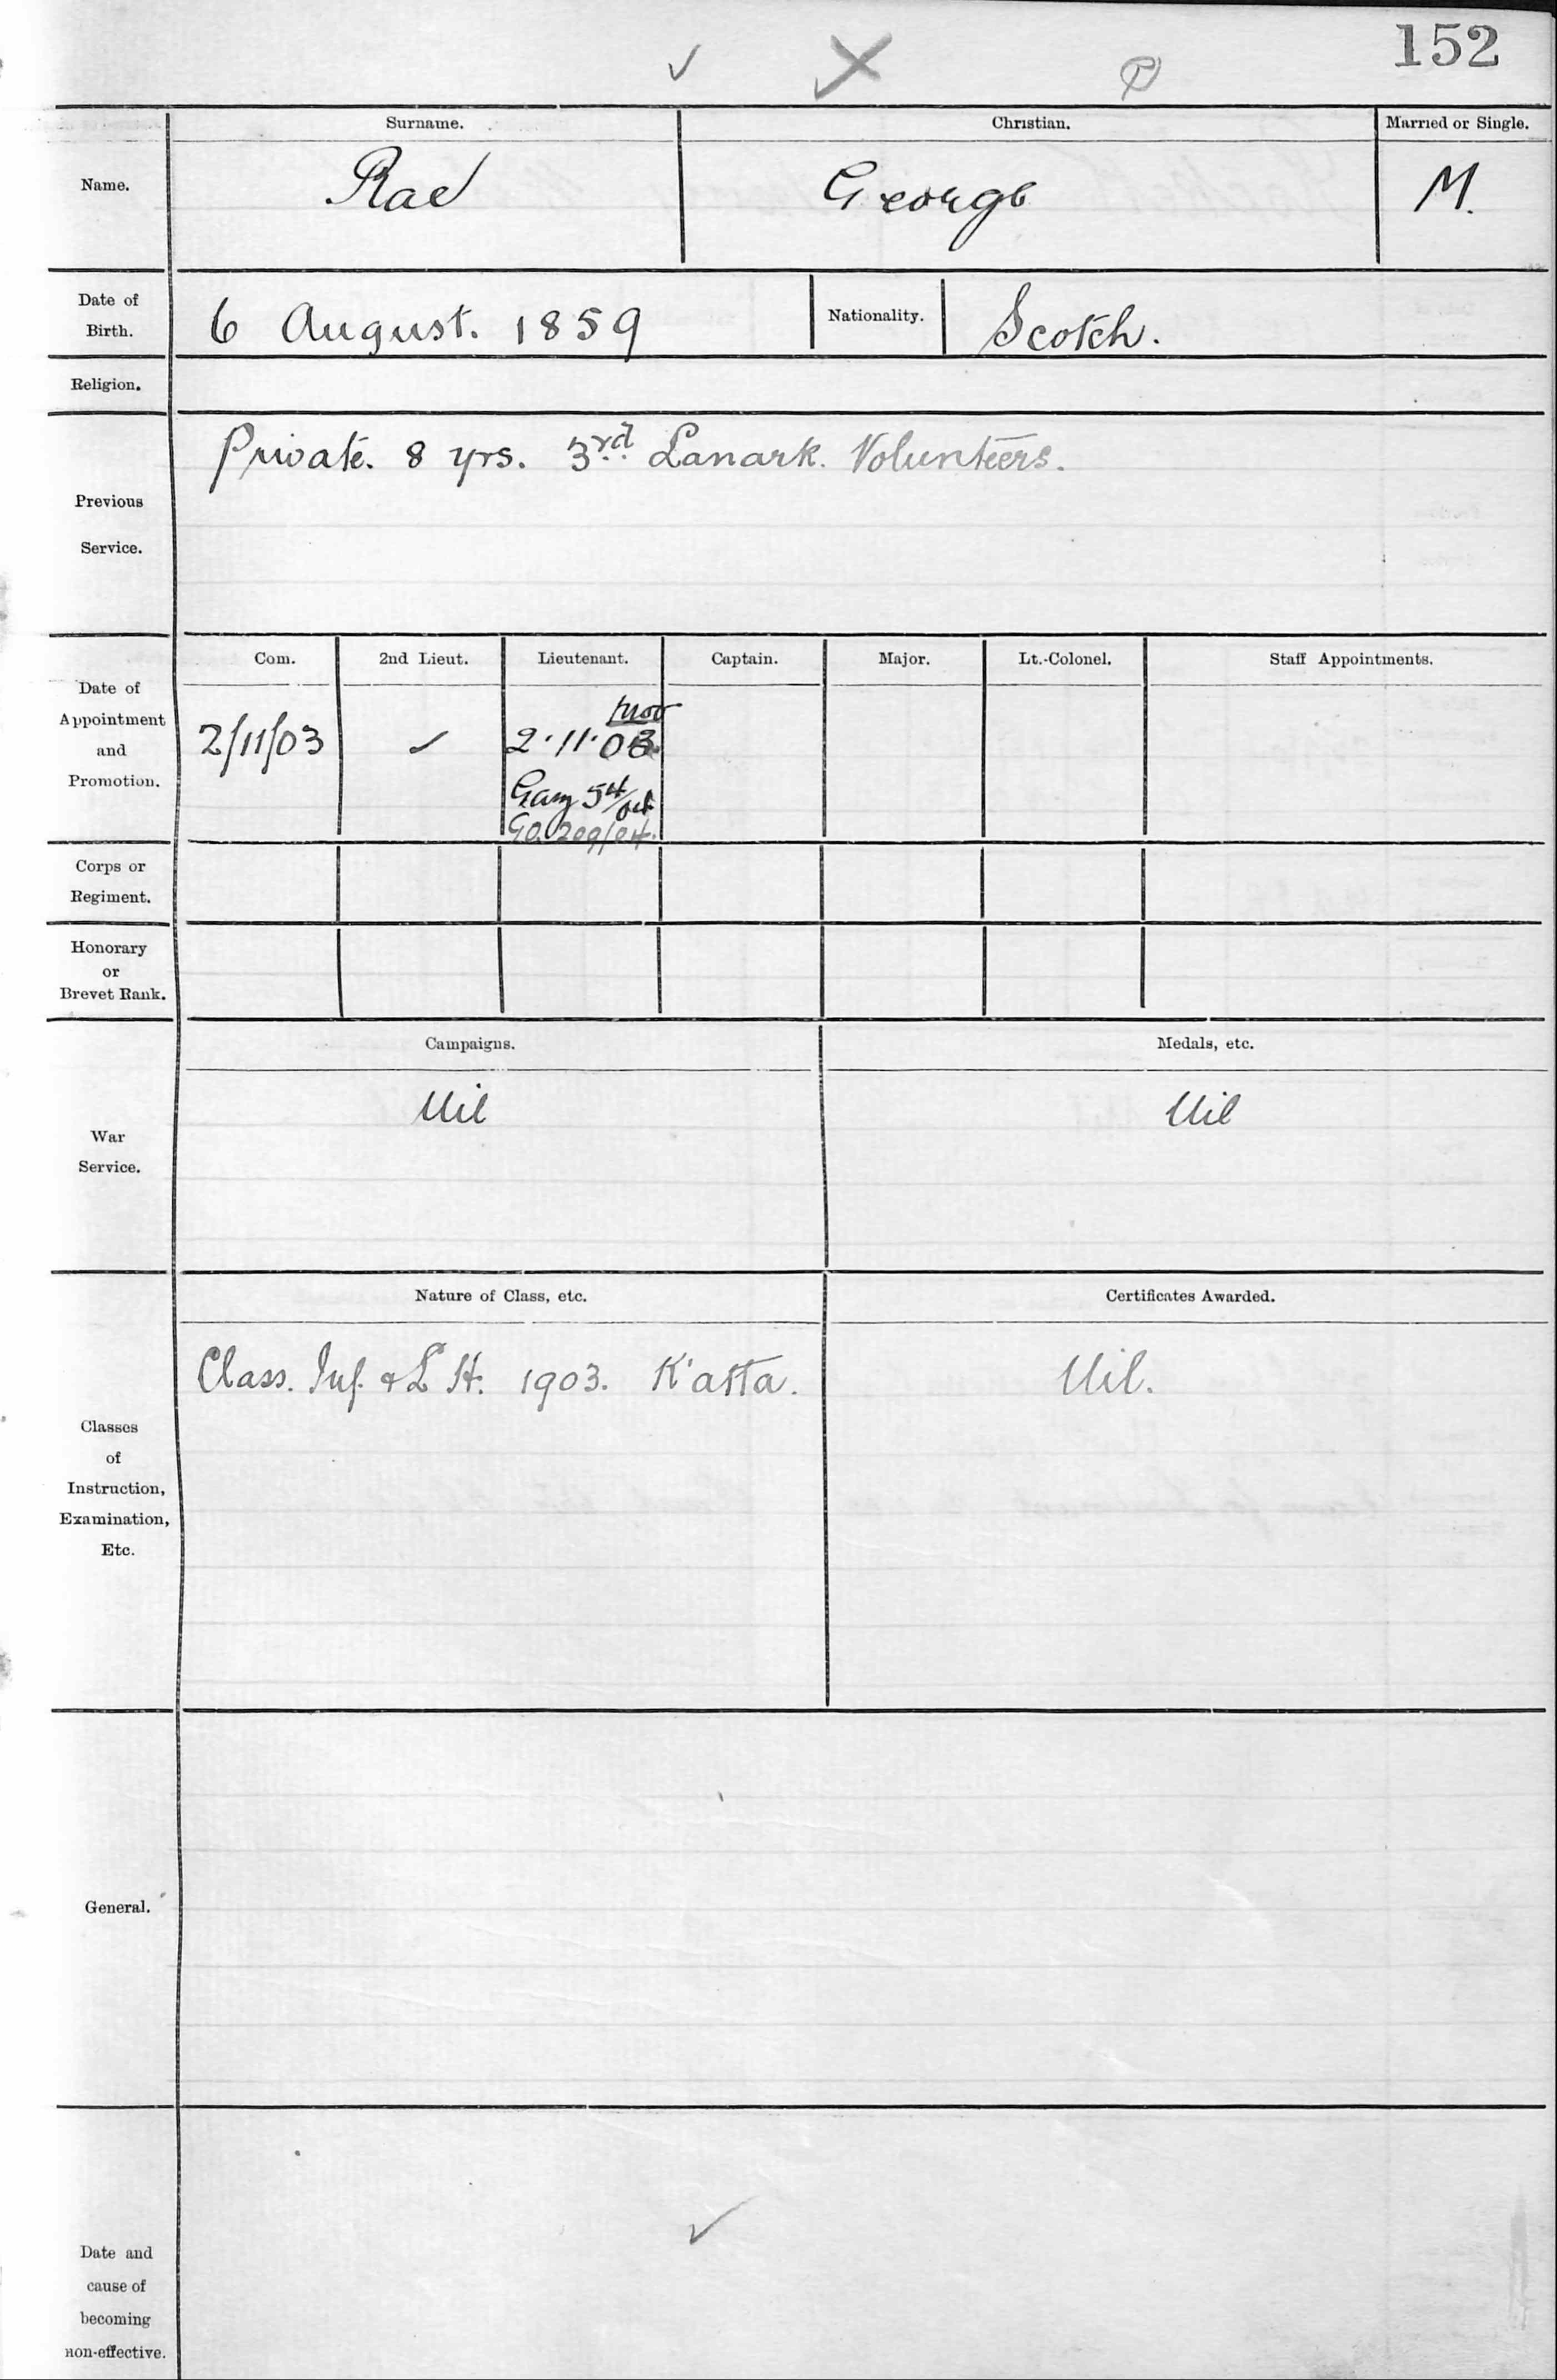 152
Surname. Christian. Married or Single.
Name. Rae George M.
Date of Birth. 6 August. 1859 Nationality. Scotch.
Religion.
Previous Service. Private. 8 yrs. 3rd. Lanark. Volunteers.
Com. 2nd Lieut. Lieutenant. Captain. Major. Lt.-Colonel. Staff Appointments.
Date of Appointment and Promotion. 2/11/03 ✓ 2.11.03
G.O. 209/04.
Corps or Regiment.
Honorary or Brevet Rank.
Campaigns. Medals, etc.
War Service. Nil Nil
Nature of Class, etc. Certificates Awarded.
Class. Inf. & L H. 1903. K'atta. Nil.
Classes of Instruction, Examination, Etc.
General.
Date and cause of becoming non-effective.